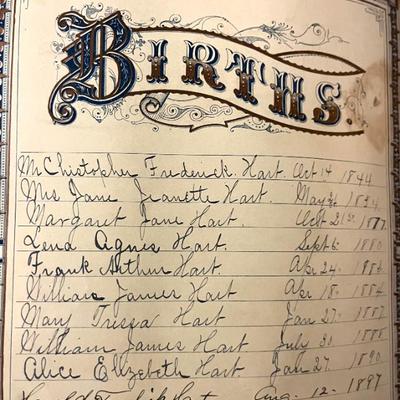 BIRTHS.
Mr Chistopher Frederick. Hart. Oct 14 1844
Mrs Jane Jeanette Hart. May
Margaret Jane Hart. Oct 21st. 1877.
Lena Agnes Hart. Sept 6. 1880
Frank Arthur Hart. Ap 24. 1882
William James Hart Ap 18. 1884
Mary Trissa Hart Jan 27. 1887
William James Hart July 30 1888
Alice Elizebeth Hart Jan 27. 1890
Aug. 12. 1897